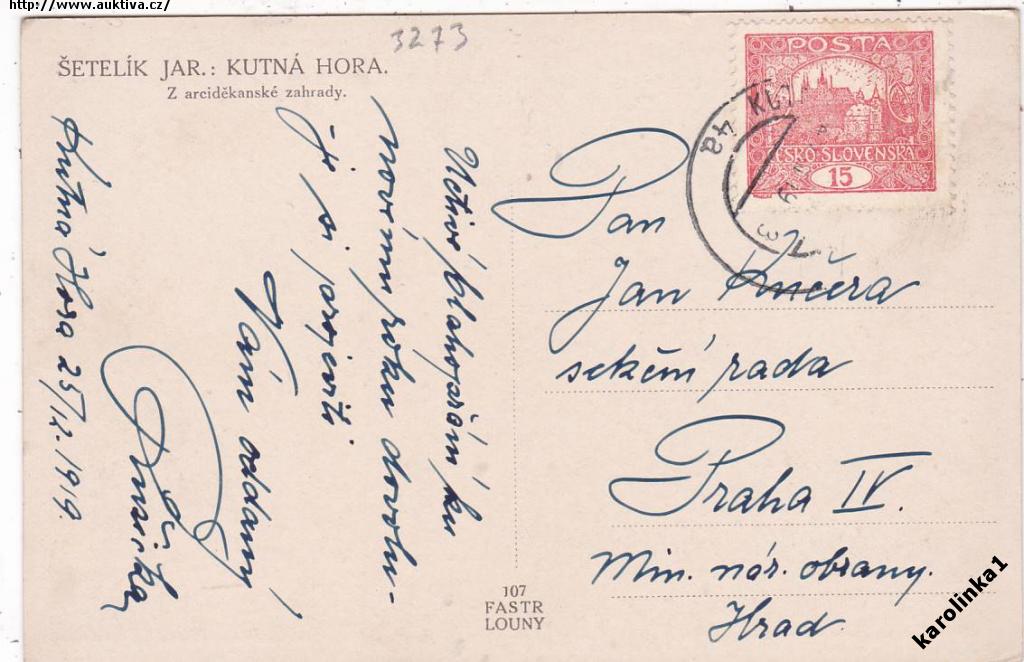 http://www.auktiva.cz/
3273
ŠETELÍK JAR.: KUTNÁ HORA.
Z arciděkanské zahrady.
Kutná Hora 25/12.1919.
Uctivé blahopřání ku
novému roku dovolu-
ji si projeviti
Vám oddaný
POSTA
ČESKO-SLOVENSKA
15
4a
Pan
Jan Kučera
sekční rada
Praha IV.
Min. nár. obrany.
Hrad
107
FASTR
LOUNY
karolinka1